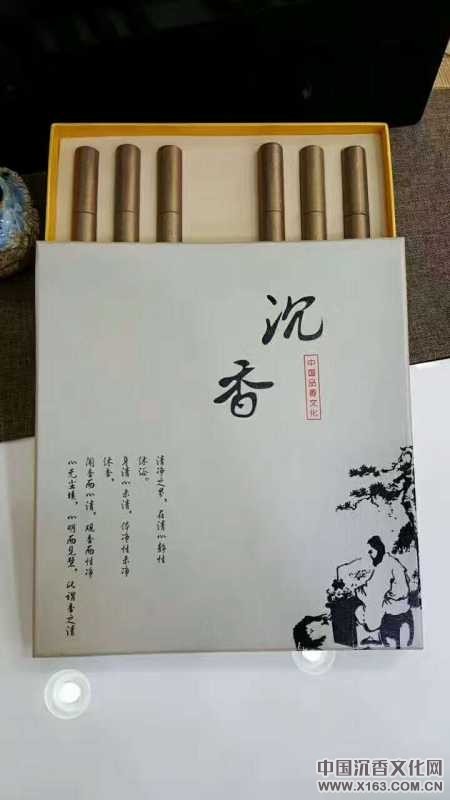 沉
香
中国品香文化
清净之梦，在清心静性
休浴。
身清心未清，体净性未净
休香。
闻香而心清，观香而性净
心无尘境，心明而见慧，此谓香之清
中国沉香文化网
WWW.X163.COM.CN